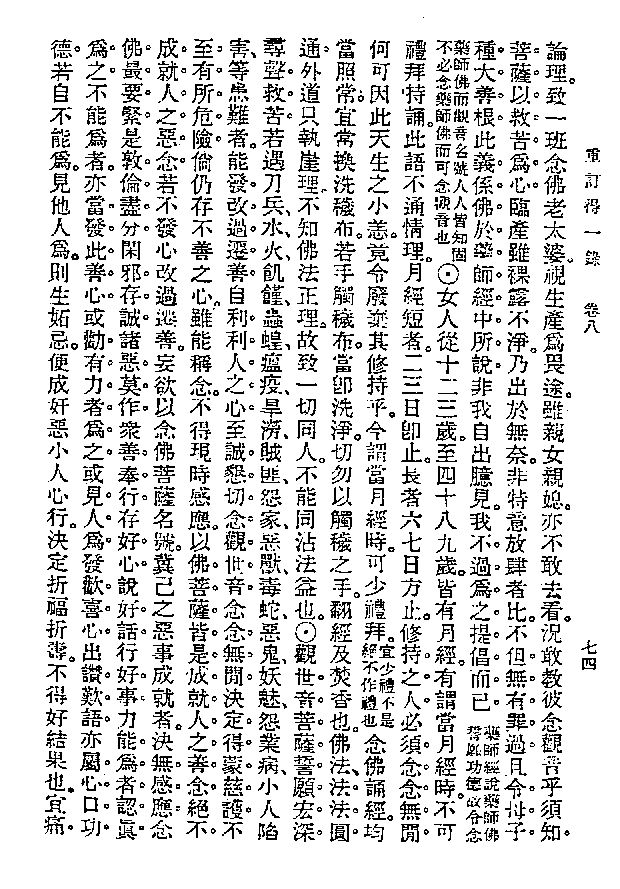 重訂得一錄　卷八　七四
論理。致一班念佛老太婆。視生產爲畏途。雖親女親媳。亦不敢去看。況敢敎彼念觀音乎。須知
菩薩以救苦爲心。臨產雖裸露不淨。乃出於無奈。非特意放肆者比。不但無有罪過。且令母子
種大善根。此義係佛於藥師經中所說。非我自出臆見。我不過爲之提倡而已。藥師經說藥師佛誓願功德故令念
藥師佛而觀音名號人人皆知固不必念藥師佛而可念觀音也⊙女人從十二三歲。至四十八九歲。皆有月經。有謂當月經時。不可
禮拜持誦。此語不通情理。月經短者。二三日卽止。長者六七日方止。修持之人。必須念念無間。
何可因此天生之小恙。竟令廢棄其修持乎。今謂當月經時。可少禮拜。宜少禮不是絕不作禮也念佛誦經。均
當照常。宜常換洗穢布。若手觸穢布。當卽洗淨。切勿以觸穢之手。翻經及焚香也。佛法、法法圓
通。外道只執崖理。不知佛法正理。故致一切同人。不能同沾法益也。⊙觀世音菩薩誓願宏深。
尋聲救苦。若遇刀兵、水火、飢饉、蟲蝗、瘟疫、旱澇、賊匪、怨家、惡獸、毒蛇、惡鬼、妖魅、怨業病、小人陷
害、等患難者。能發改過遷善。自利利人之心。至誠懇切念觀世音。念念無間。決定得蒙慈護。不
至有所危險。倘仍存不善之心。雖能稱念。不得現時感應。以佛菩薩皆是成就人之善念。絕不
成就人之惡念。若不發心改過遷善。妄欲以念佛菩薩名號。冀己之惡事成就者。決無感應。念
佛最要緊是敦倫盡分。閑邪存誠。諸惡莫作。衆善奉行。存好心。說好話。行好事。力能爲者。認眞
爲之。不能爲者。亦當發此善心。或勸有力者爲之。或見人爲。發歡喜心。出讚歎語。亦屬心口功
德。若自不能爲。見他人爲。則生妬忌。便成奸惡小人心行。決定折福折壽。不得好結果也。宜痛